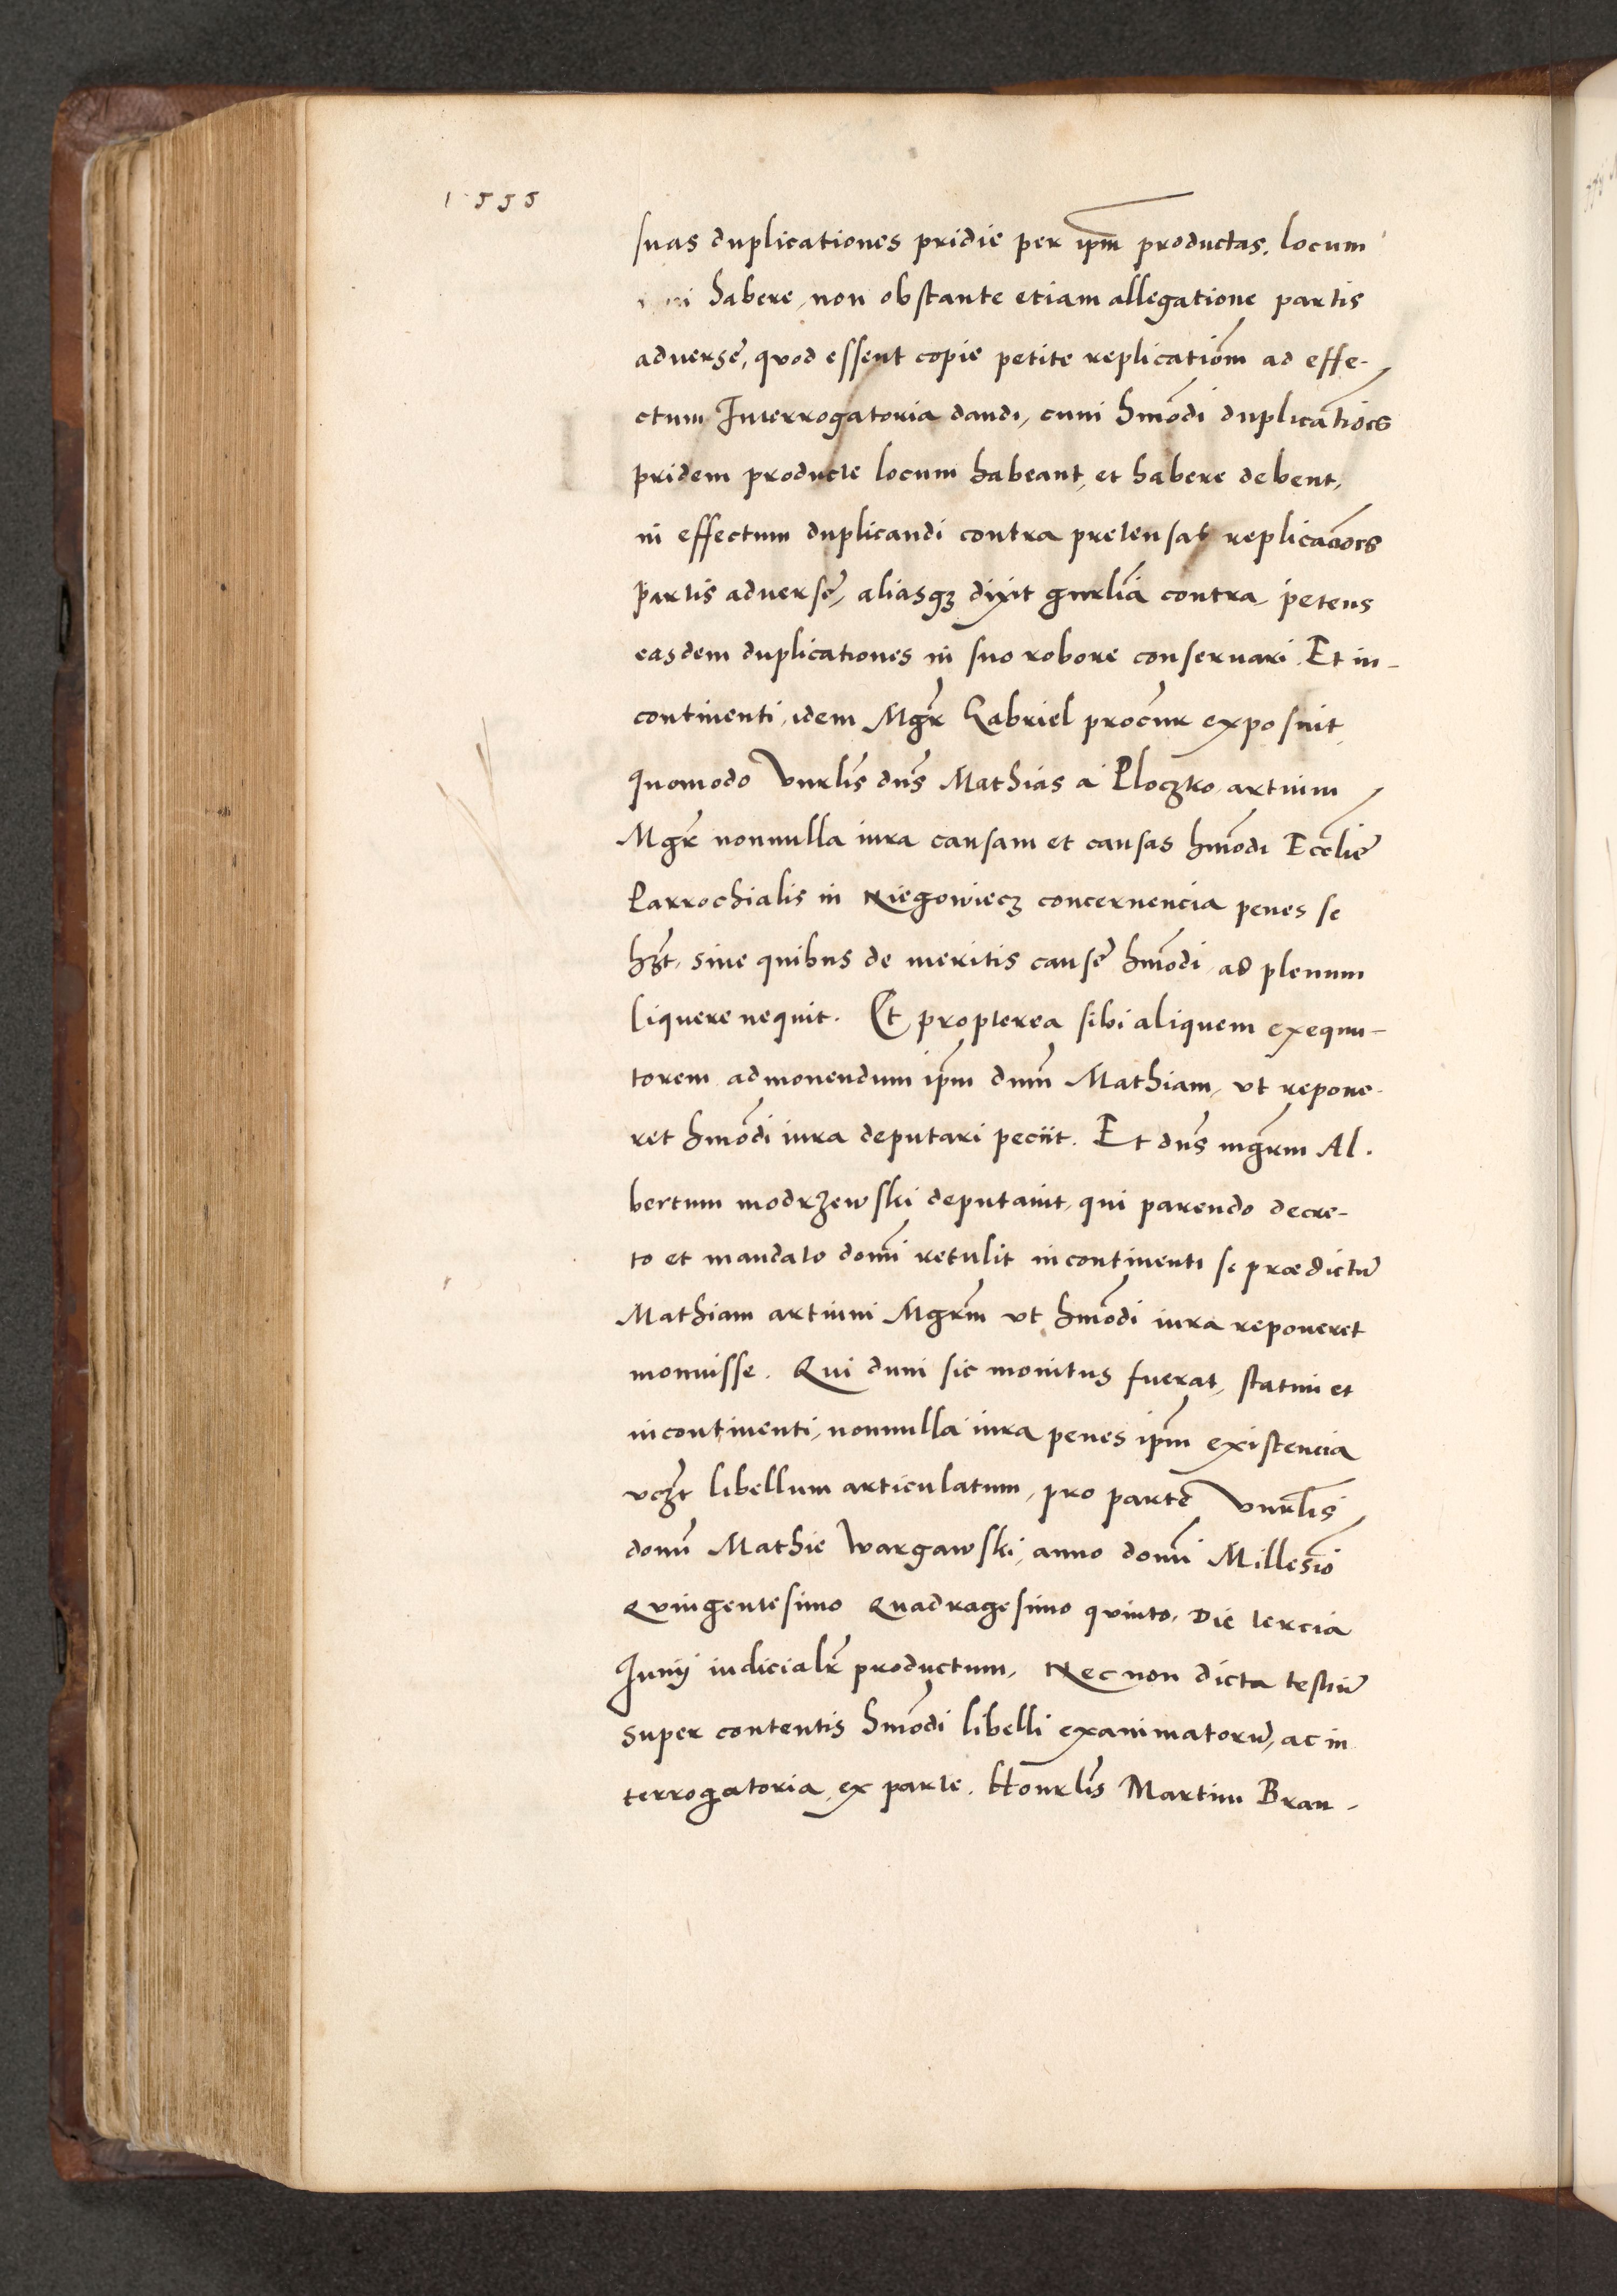 1555
suas duplicationes pridie per ipm̄ productas. locum
habere, non obstante etiam allegatione partis
aduersę, quod essent copie petite replicatiom̄ ad effe-
ctum Interrogatoria dandi, cum hmōdi duplicatiōes
pridem producte locum habeant, et habere debent,
in effectum duplicandi contra pretensas replicatiōes
partis aduersę, aliasqꝫ dixit gnrlia contra, petens
easdem duplicationes in suo robore conseruari. Et in-
continenti, idem Mgr̄ Gabriel procur̄ exposuit
quomodo Vnrlis dns̄ Mathias a Ploczko, artium
Mgr̄ nonnulla iura causam et causas hmōdi Eccliē
Parrochialis in Niegowiecz concernencia penes se
hꝫt, sine quibus de meritis causę hmōdi, ad plenum
liquere nequit. Et propterea sibi aliquem exequu-
torem admonendum ipm̄ dnm̄ Mathiam, vt repone-
ret hmōdi iura deputari peciit. Et dns̄ mgrm̄ Al-
bertum modrzewski deputauit, qui parendo decre-
to et mandato domī retulit incontinenti se prædictū
Mathiam artium Mgrm̄ vt hmōdi iura reponeret
monuisse. Qui dum sic monitus fuerat, statim et
incontinenti, nonnulla iura penes ipm̄ existencia
vczꝫt libellum articulatum, pro parte Vnrlis
domī Mathie Wargawski, anno domī Millesiō
Quingentesimo Quadragesimo quinto, Die tercia
Junij iudicialr̄ productum, Necnon dicta testiū
super contentis hmōdi libelli examinatorū, ac in
terrogatoria, ex parte. Honrlis Martini Bran-